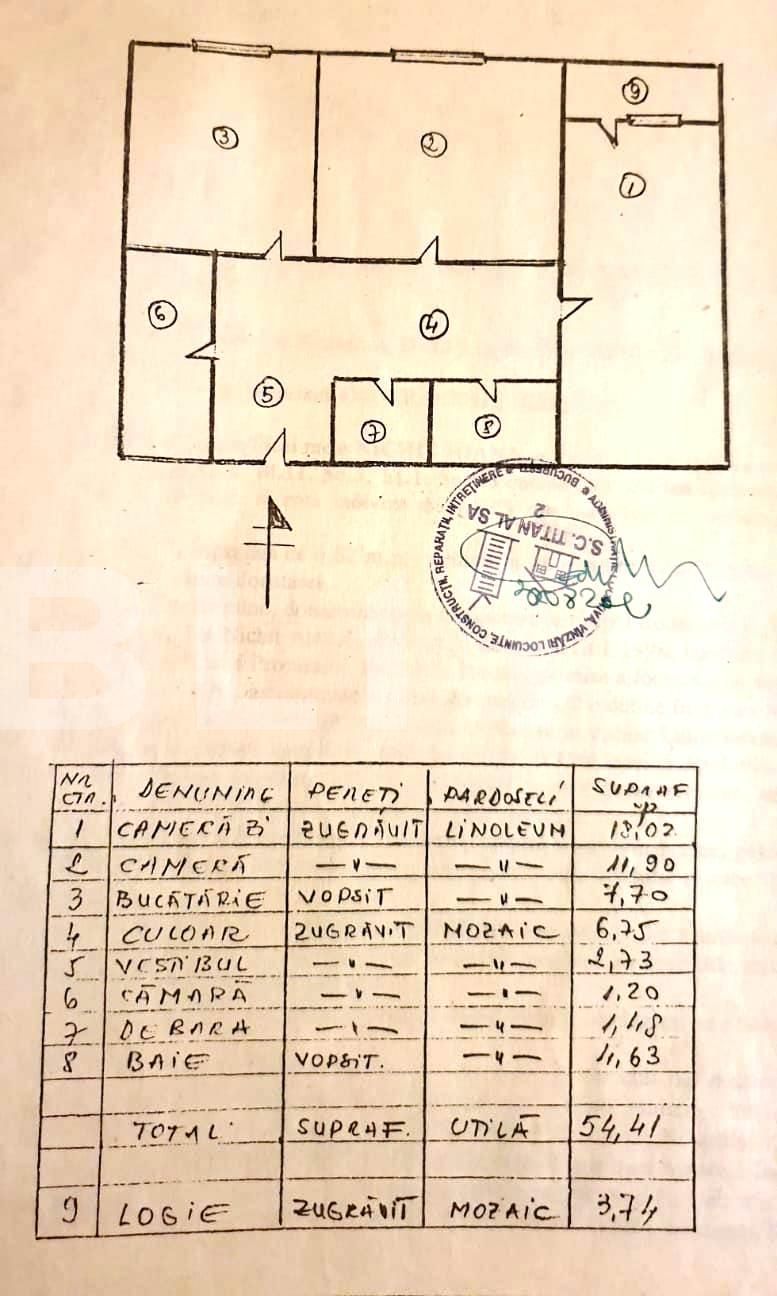 9
3
2
1
6
4
5
7
8
CONSTRUCȚII, REPARAȚII, ÎNTREȚINERE * BUCUREȘTI *
VÎNZĂRI LOCUINȚE,
S.C. TITAN AL SA
2
BLI
NR. DENUMIRE PEREȚI PARDOSELI SUPRAF
CTR. mp
1 CAMERĂ ZI ZUGRĂVIT LINOLEUM 18,02
2 CAMERĂ — " — — " — 11,90
3 BUCĂTĂRIE VOPSIT — " — 7,70
4 CULOAR ZUGRĂVIT MOZAIC 6,75
5 VESTIBUL — " — — " — 2,73
6 CĂMARĂ — " — — " — 1,20
7 DEBARA — " — — " — 1,48
8 BAIE VOPSIT. — " — 4,63
TOTAL SUPRAF. UTILĂ 54,41
9 LOGIE ZUGRĂVIT MOZAIC 3,74